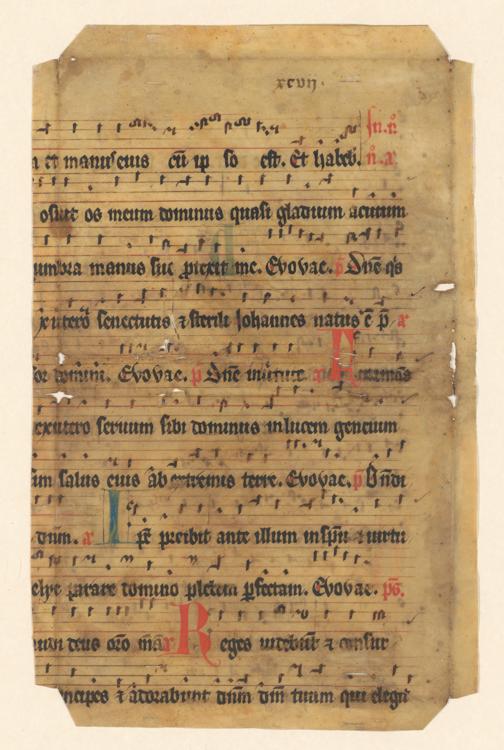 xcvij.
et manus eius cū ip so est. Et habeb. In .ii.
osuit os meum dominus quasi gladium acutum
umbra manus sue protexit me. Evovae. p̄ Dn̄e q̄s
ex utero senectutis & sterili Johannes natus ē p̄ a
dommi. Evovae. p̄ Dn̄e in uirtute a F ormans
ex utero seruum sibi dominus in lucem gencium
salus eius ab extremis terre. Evovae. p̄ Bn̄di
dn̄m. a I pē preibit ante illum in sp̄u & uirtu
parare domino plebem perfectam. Evovae. ps.
deus orō mēa R eges uidebūt & consur
ncipes & adorabunt dn̄m dm̄ tuum qui elegit